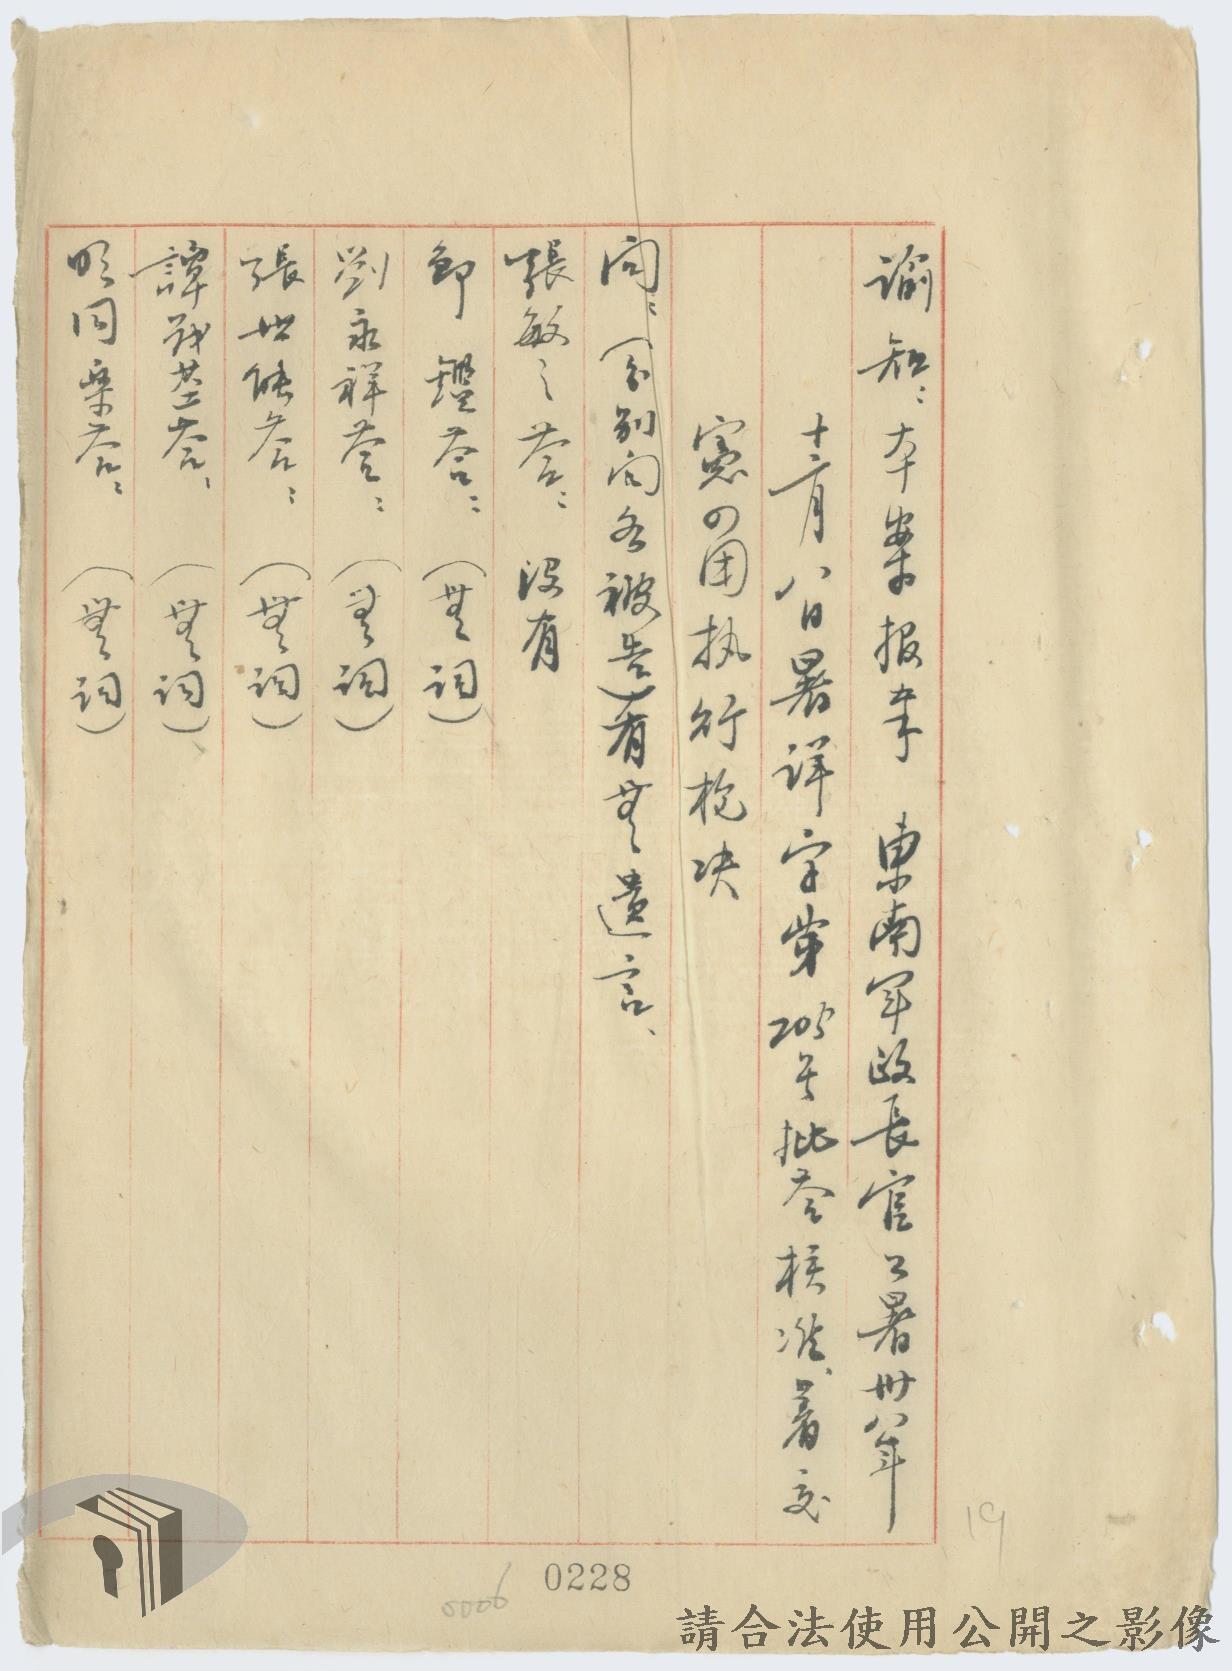 諭知：本案报奉　東南军政長官公署卅八年
十二月八日署详字第205号批答核准、着交
憲四团执行枪决
问：（分别问各被告）有無遺言、
張敏之答：没有
鄒鑑答：（無词）
劉永祥答：（無词）
張世能答：（無词）
譚茂基答、（無词）
明同樂答：（無词）
19
0006
0228
請合法使用公開之影像